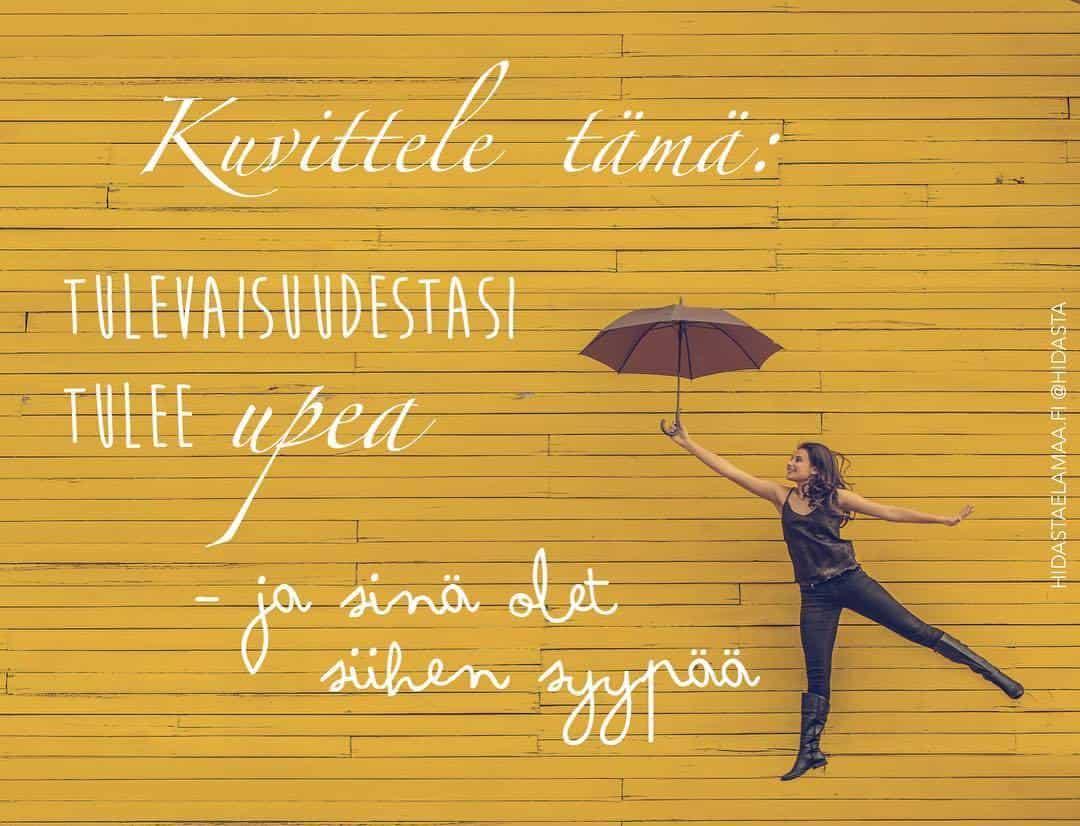 Kuvittele tämä:
TULEVAISUUDESTASI
TULEE upea
- ja sinä olet
siihen syypää
HIDASTAELAMAA.FI @HIDASTA